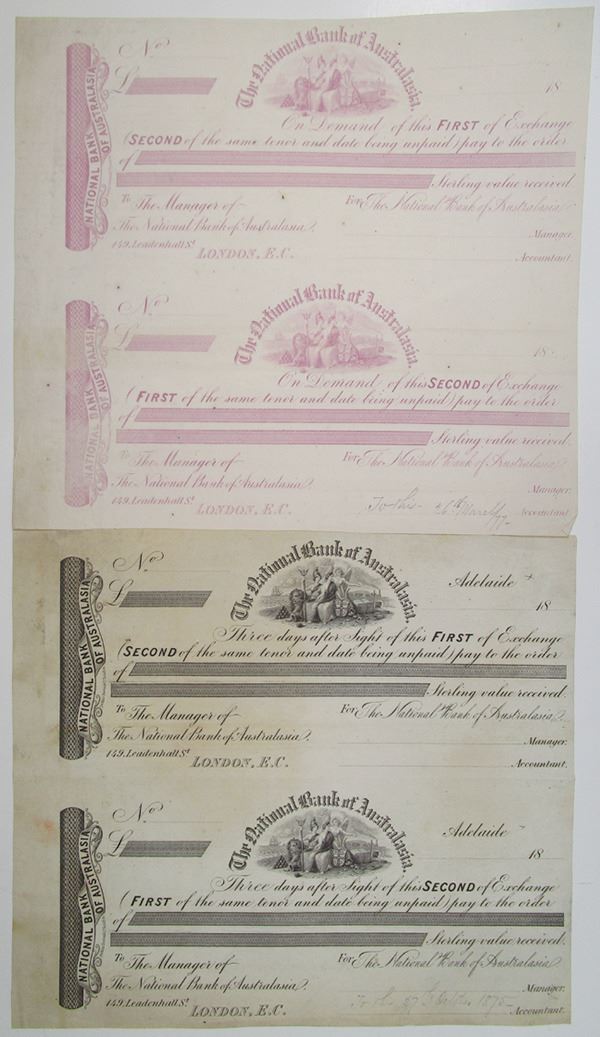 NATIONAL BANK OF AUSTRALASIA
No
£
The National Bank of Australasia.
18
On Demand of this FIRST of Exchange
(SECOND of the same tenor and date being unpaid) pay to the order
of
Sterling value received.
To The Manager of For The National Bank of Australasia.
The National Bank of Australasia. Manager.
149. Leadenhall St. LONDON, E.C. Accountant.
NATIONAL BANK OF AUSTRALASIA
No
£
The National Bank of Australasia.
18
On Demand of this SECOND of Exchange
(FIRST of the same tenor and date being unpaid) pay to the order
of
Sterling value received.
To The Manager of For The National Bank of Australasia.
The National Bank of Australasia. Manager.
149. Leadenhall St. LONDON, E.C. To this 26th March/77 Accountant.
NATIONAL BANK OF AUSTRALASIA
No
£
The National Bank of Australasia.
Adelaide
18
Three days after Sight of this FIRST of Exchange
(SECOND of the same tenor and date being unpaid) pay to the order
of
Sterling value received.
To The Manager of For The National Bank of Australasia.
The National Bank of Australasia. Manager.
149. Leadenhall St. LONDON, E.C. Accountant.
NATIONAL BANK OF AUSTRALASIA
No
£
The National Bank of Australasia.
Adelaide
18
Three days after Sight of this SECOND of Exchange
(FIRST of the same tenor and date being unpaid) pay to the order
of
Sterling value received.
To The Manager of For The National Bank of Australasia
The National Bank of Australasia. Manager.
149. Leadenhall St. LONDON, E.C. Accountant.